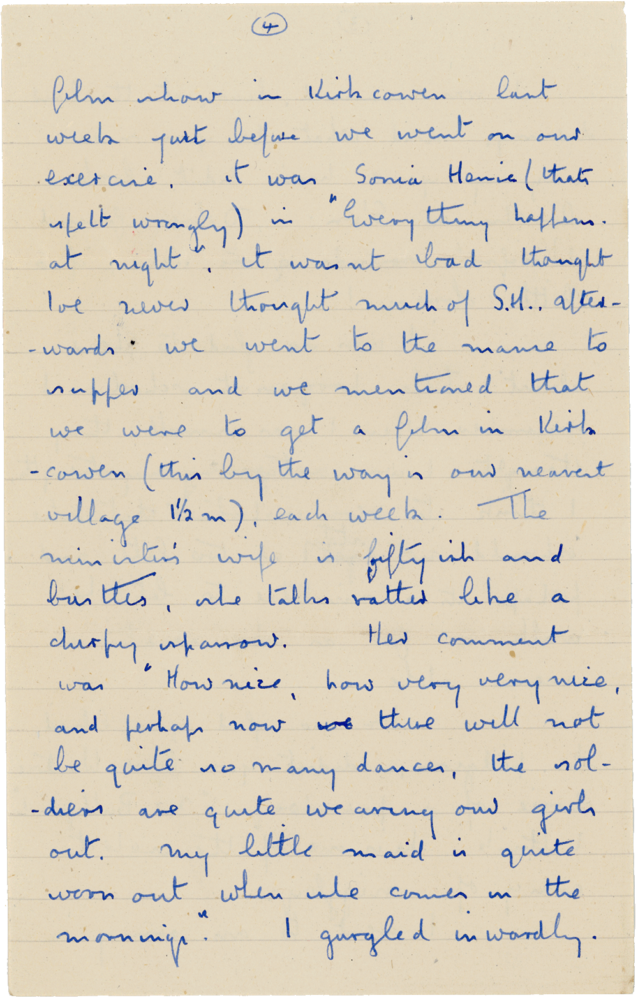 4
film show in Kirkcowen last
week just before we went on our
exercise. it was Sonia Henie (thats
spelt wrongly) in "Everything happens.
at night". it wasnt bad thought
I've never thought much of S.H.. after-
-wards. we went to the manse to
supper and we mentioned that
we were to get a film in Kirk
-cowen (this by the way is our nearest
village 1½ m), each week. The
minister's wife is fiftyish and
bustles, she talks rather like a
chirpy sparrow. Her comment
was "How nice, how very very nice,
and perhaps now we there will not
be quite so many dances, the sol-
-diers are quite wearing our girls
out. My little maid is quite
worn out when she comes in the
mornings". I gurgled inwardly.